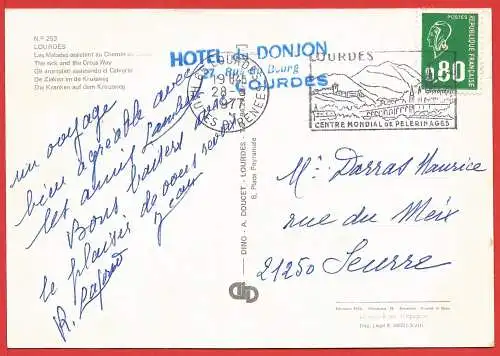 N.º 253
LOURDES
Les Malades assistent au Chemin
The sick and the Cross Way
Gli ammalati assistendo il Calvario
De Zieken en de Kruisweg
Die Kranken auf dem Kreuzweg
HOTEL du DONJON
27, Rue du Bourg
LOURDES
19 H
28
1977
LOURDES
CENTRE MONDIAL DE PÈLERINAGES
POSTES
0,80
REPUBLIQUE FRANÇAISE
un voyage
bien agréable avec
les amis
Bons baisers
le plaisir de vous revoir
Jean
R.
DINO - A. DOUCET - LOURDES
6, Place Peyramale
Mr Darras Maurice
rue du Meix
21250 Seurre